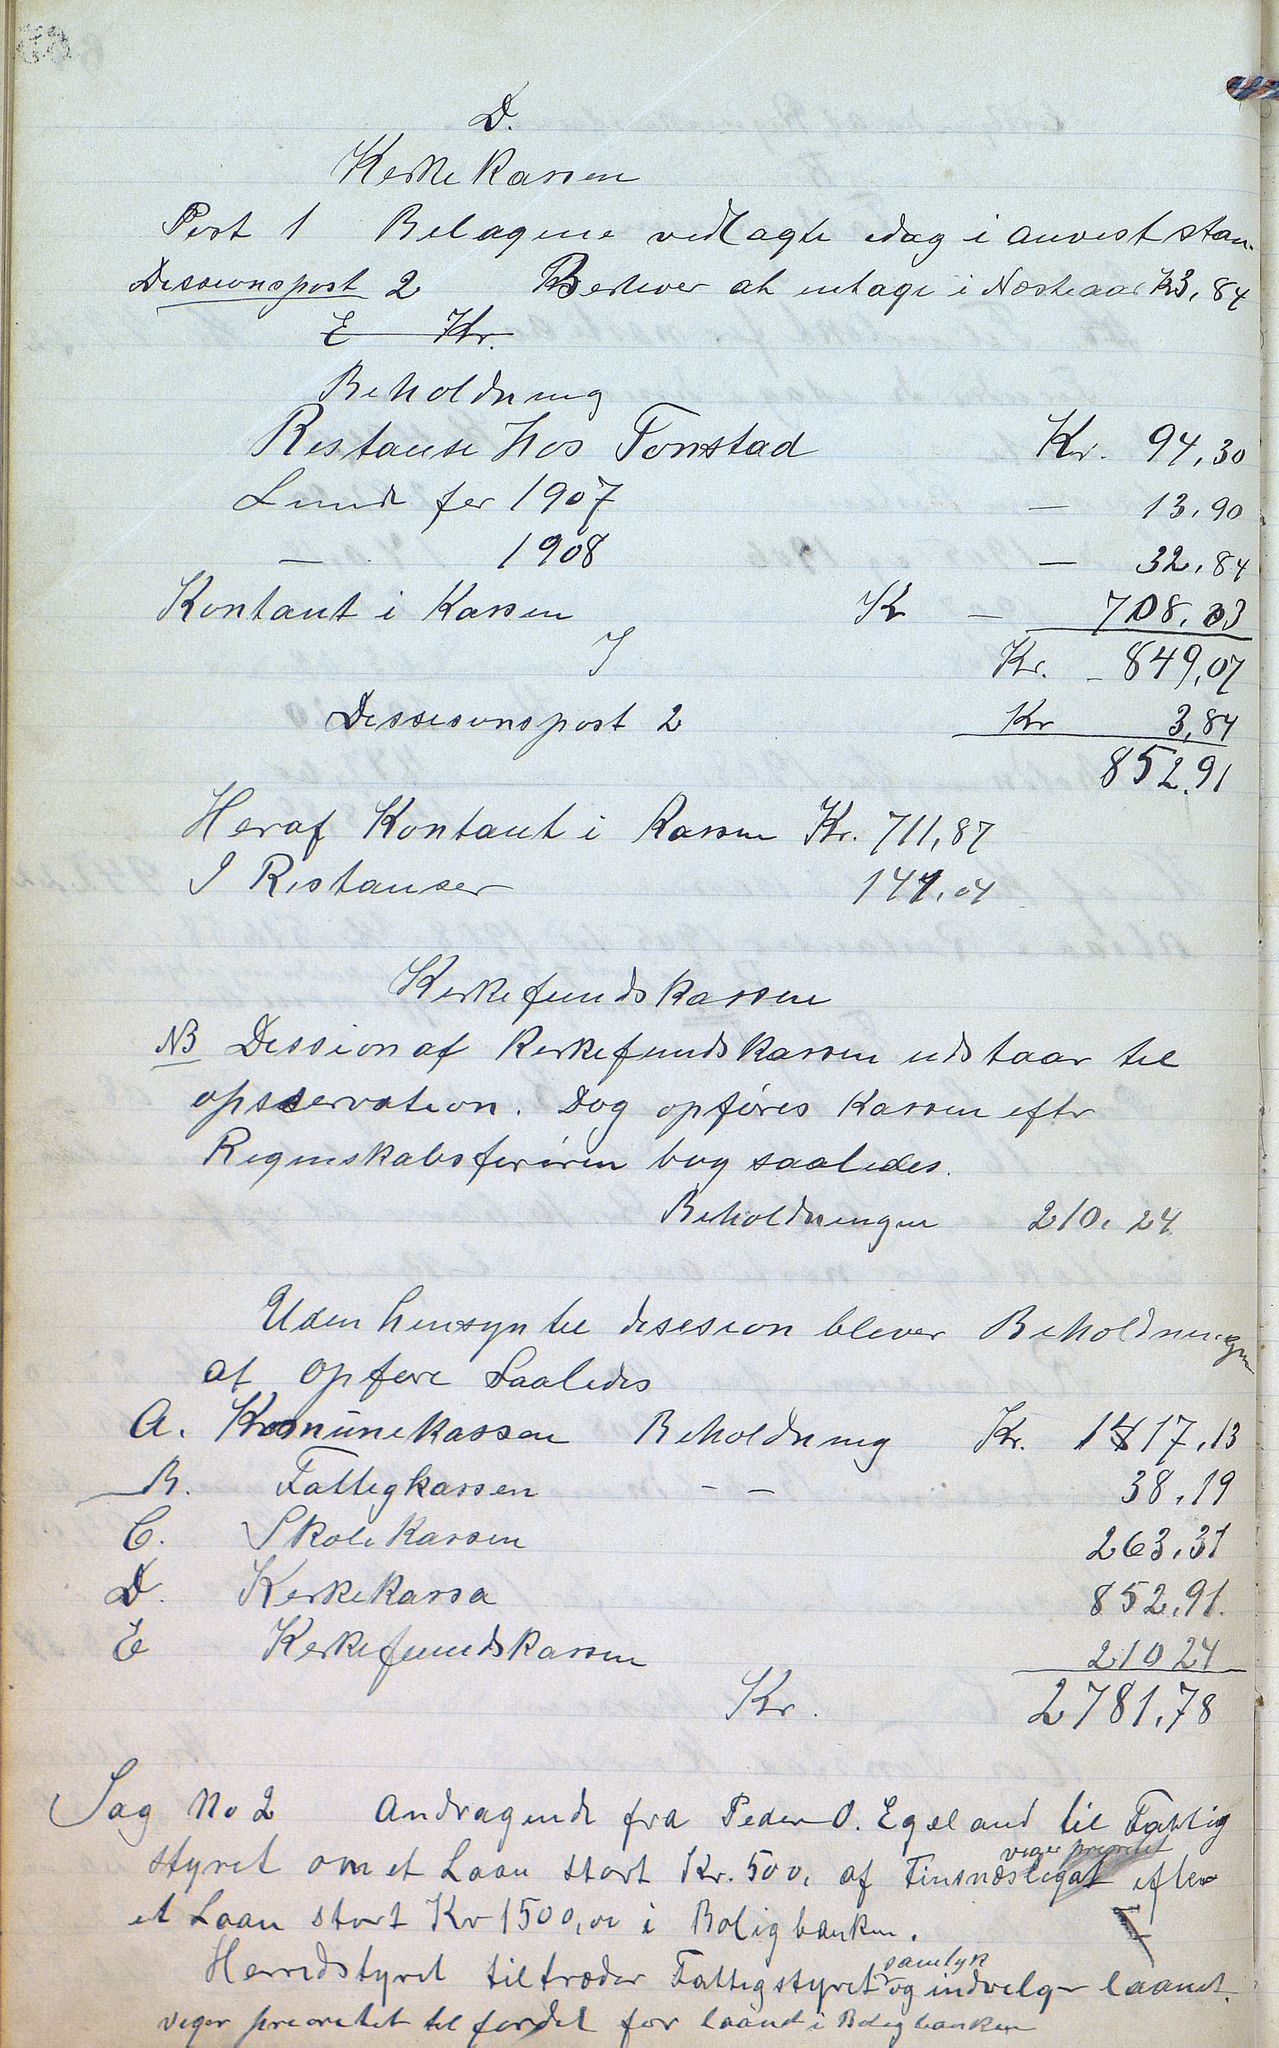 D.
Kerke Kassen
Post 1 Belagene vedlagte idag i anvist stan.
Dessionspost 2 Berhver at intage i Næste aar K 3,84
E Kr.
Beholdning
Restanse hos Tonstad Kr. 94,30
Lund for 1907 — 13,90
— 1908 — 32,84
Kontant i Kassen Kr — 708,03
I Kr. - 849,07
Dessisionspost 2 Kr 3,84
852,91
Heraf Kontant i Kassen Kr. 711,87
I Restanser 141,04
Kerkefundskassen
NB Dession af Kerkefundskassen udstaar til
opsservation. Dog opføres Kassen eftr
Regnskabsførøren bog saaledes.
Beholdningen 210,24
Uden hensyn til desesion blever Beholdningen
at opføre Saaledes
A. Komunekassen Beholdning Kr. 1417,13
B. Fattigkassen - - 38,19
C. Skole Kassen 263,31
D. Kerkekassa 852,91.
E Kerkefundskassen 210 24
Kr. 2781,78
Sag No 2 Andragende fra Peder O. Egeland til Fattig
styret om et Laan stort Kr. 500, af Finsnæslegat viger prioritet efter
et Laan stort Kr 1500,00 i Boligbanken.
Herredstyret tiltræder Fattigstyret samtyk og indvelger laanet.
viger prioretet til fordel for laanet i Boligbanken